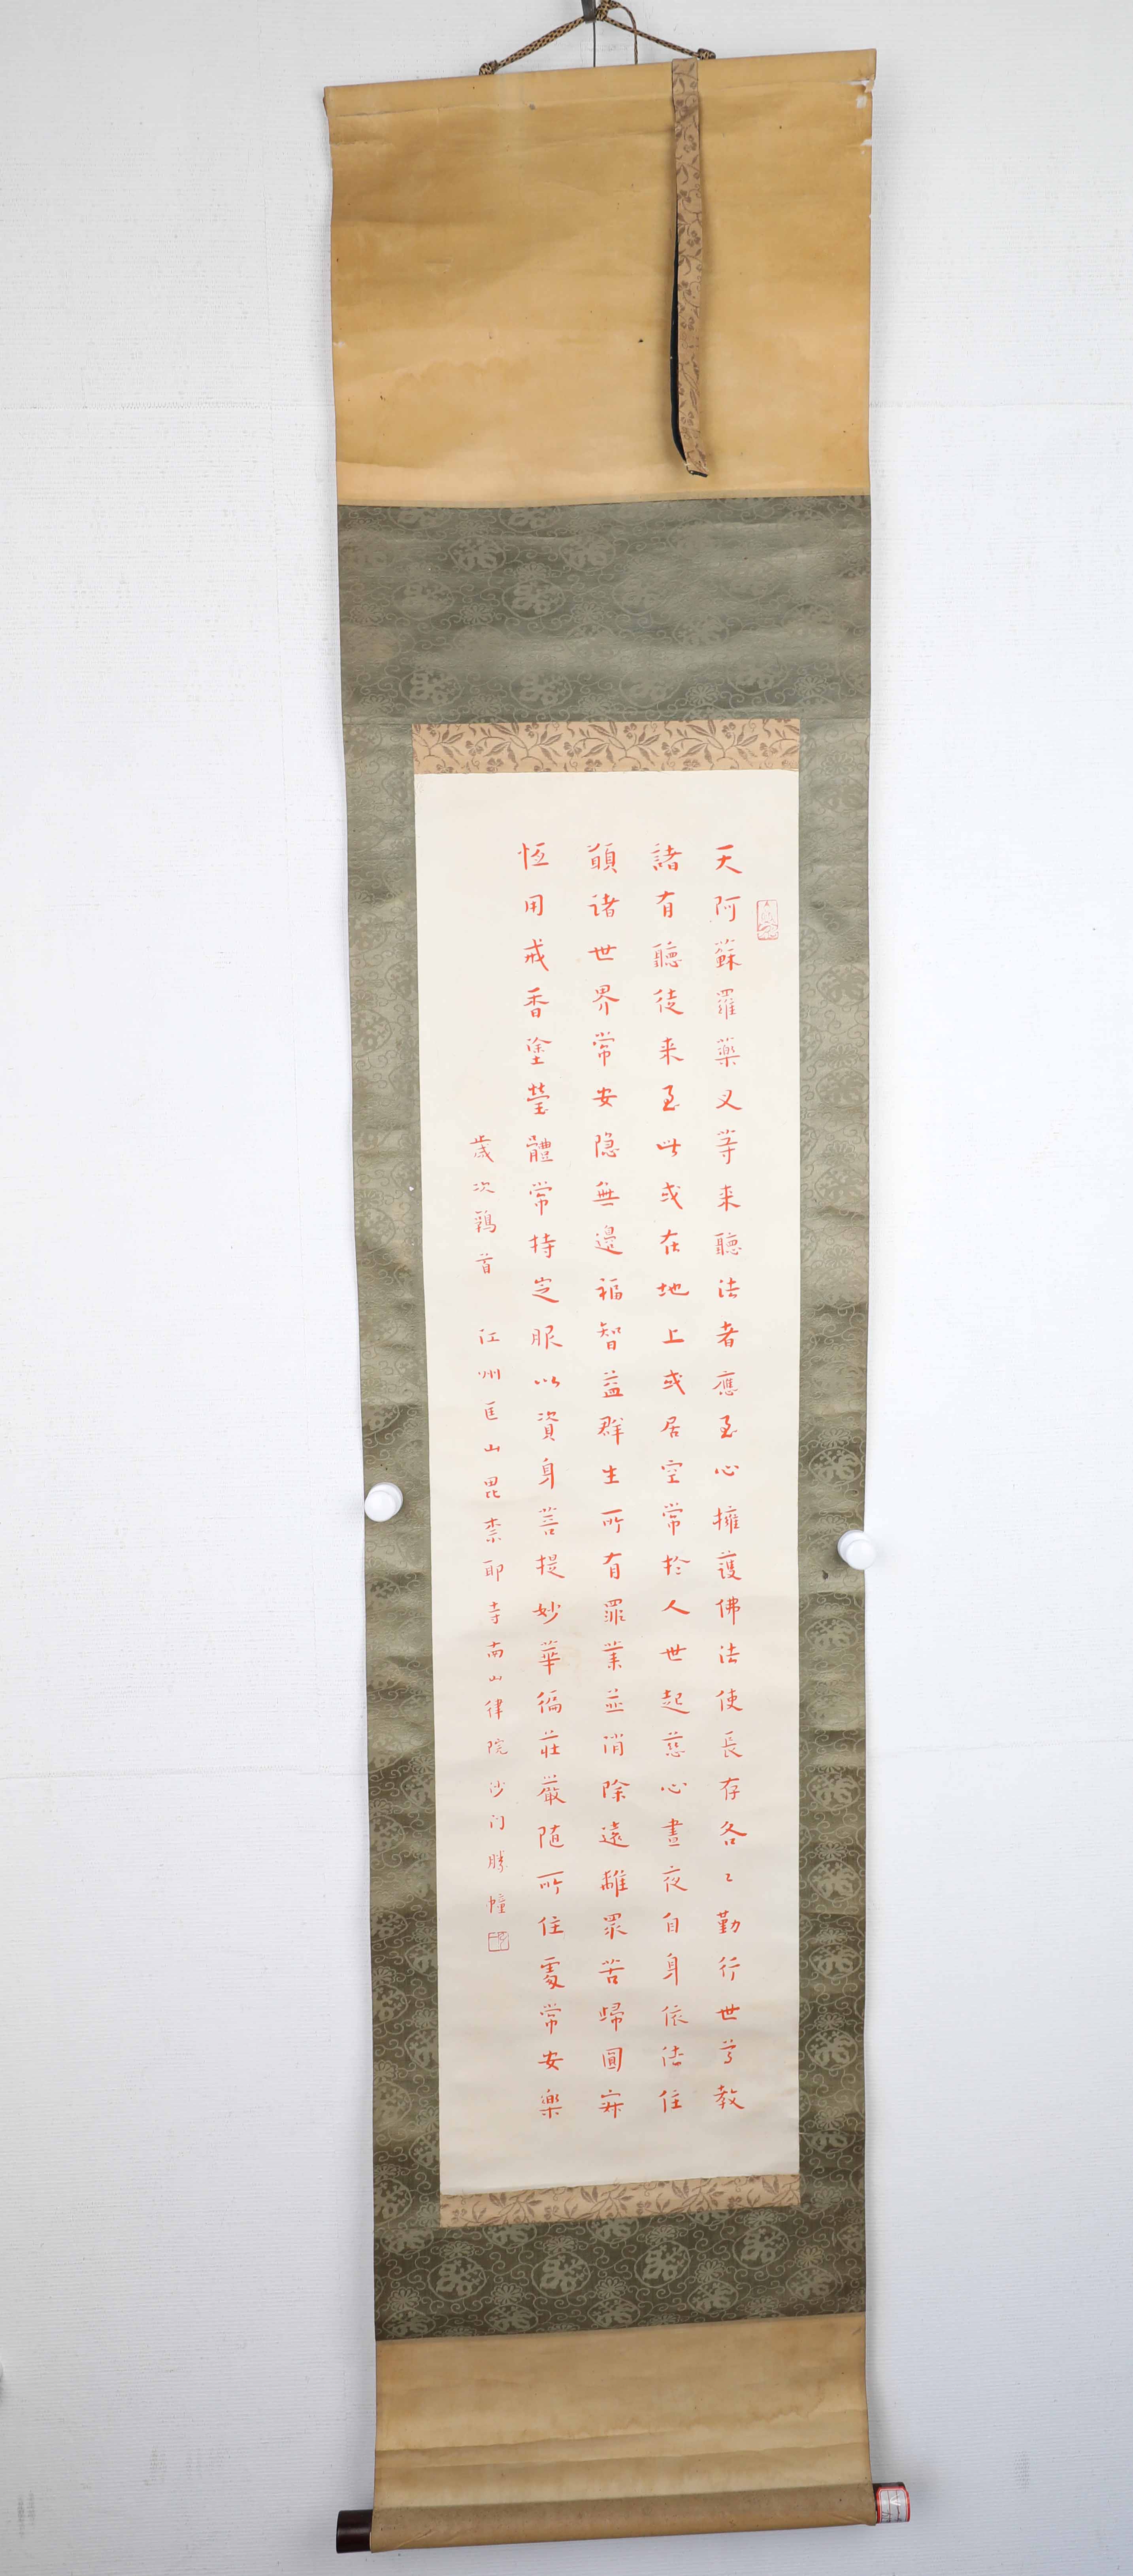 天阿蘇羅藥叉等来聽法者應至心擁護佛法使長存各々勤行世尊教
諸有聽徒来至此或在地上或居空常於人世起慈心晝夜自身依法住
願诸世界常安隐無邊福智益群生所有罪業並消除遠離眾苦歸圓寂
恆用戒香塗瑩體常持定服以資身菩提妙華徧莊嚴隨所住處常安樂
歲次鶉首 江州匡山毘柰耶寺南山律院沙门勝幢